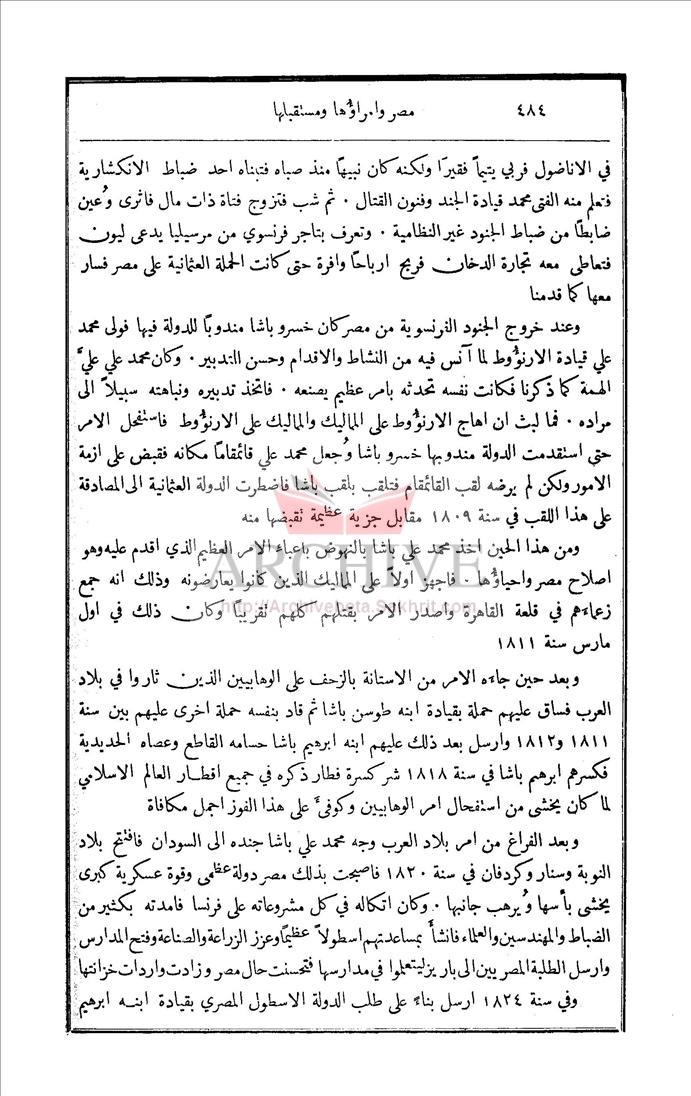 ٤٨٤ مصر وامراؤها ومستقبلها
في الاناضول فربي يتيماً فقيرًا ولكنه كان نبيهًا منذ صباه فتبناه احد ضباط الانكشارية
فتعلم منه الفتى محمد قيادة الجند وفنون القتال ٠ ثم شب فتزوج فتاة ذات مال فاثرى وعُين
ضابطًا من ضباط الجنود غير النظامية ٠ وتعرف بتاجر فرنسوي من مرسيليا يدعى ليون
فتعاطى معه تجارة الدخان فربح ارباحًا وافرة حتى كانت الحملة العثمانية على مصر فسار
معها كما قدمنا
وعند خروج الجنود الفرنسوية من مصر كان خسرو باشا مندوبًا للدولة فيها فولى محمد
علي قيادة الارنؤوط لما آنس فيه من النشاط والاقدام وحسن التدبير ٠ وكان محمد علي عليَّ
الهمة كما ذكرنا فكانت نفسه تحدثه بامر عظيم يصنعه ٠ فاتخذ تدبيره ونباهته سبيلاً الى
مراده ٠ فما لبث ان اهاج الارنؤوط على المماليك والمماليك على الارنؤوط فاستفحل الامر
حتى استقدمت الدولة مندوبها خسرو باشا وجُعل محمد علي قائمقامًا مكانه فقبض على ازمة
الامور ولكن لم يرضه لقب القائمقام فتلقب بلقب باشا فاضطرت الدولة العثمانية الى المصادقة
على هذا اللقب في سنة ١٨٠٩ مقابل جزية عظيمة تقبضها منه
ومن هذا الحين اخذ محمد علي باشا بالنهوض باعباء الامر العظيم الذي اقدم عليه وهو
اصلاح مصر واحياؤها ٠ فاجهز اولاً على المماليك الذين كانوا يعارضونه وذلك انه جمع
زعماءهم في قلعة القاهرة واصدر الامر بقتلهم كلهم تقريبًا وكان ذلك في اول
مارس سنة ١٨١١
وبعد حين جاءه الامر من الاستانة بالزحف على الوهابيين الذين ثاروا في بلاد
العرب فساق عليهم حملة بقيادة ابنه طوسن باشا ثم قاد بنفسه حملة اخرى عليهم بين سنة
١٨١١ و١٨١٢ وارسل بعد ذلك عليهم ابنه ابرهيم باشا حسامه القاطع وعصاه الحديدية
فكسرهم ابرهيم باشا في سنة ١٨١٨ شر كسرة فطار ذكره في جميع اقطار العالم الاسلامي
لما كان يخشى من استفحال امر الوهابيين وكوفئ على هذا الفوز اجمل مكافاة
وبعد الفراغ من امر بلاد العرب وجه محمد علي باشا جنده الى السودان فافتتح بلاد
النوبة وسنار وكردفان في سنة ١٨٢٠ فاصبحت بذلك مصر دولة عظمى وقوة عسكرية كبرى
يخشى بأسها ويُرهب جانبها ٠ وكان اتكاله في كل مشروعاته على فرنسا فامدته بكثير من
الضباط والمهندسين والعلماء فانشأ بمساعدتهم اسطولاً عظيمًا وعزز الزراعة والصناعة وفتح المدارس
وارسل الطلبة المصريين الى باريز ليتعلموا في مدارسها فتحسنت حال مصر وزادت واردات خزانتها
وفي سنة ١٨٢٤ ارسل بناءً على طلب الدولة الاسطول المصري بقيادة ابنه ابرهيم
ARCHIVE
http://Archivebeta.Sakhrit.com